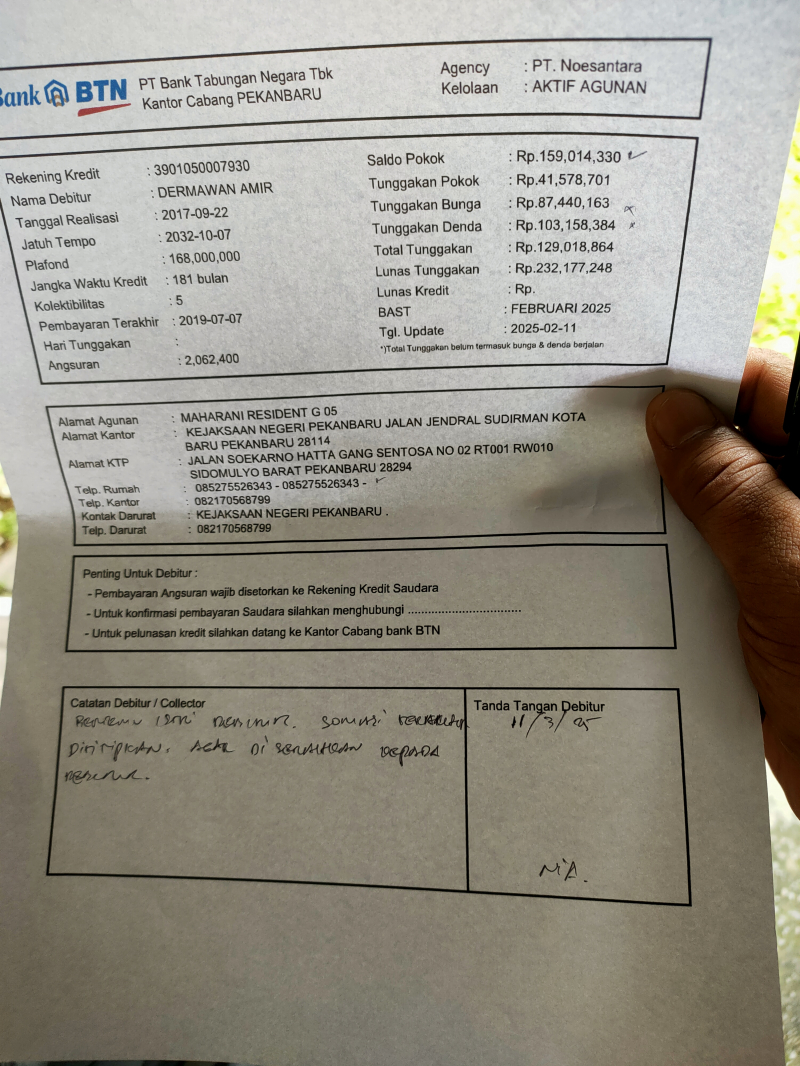 Bank BTN
PT Bank Tabungan Negara Tbk
Kantor Cabang PEKANBARU
Agency : PT. Noesantara
Kelolaan : AKTIF AGUNAN
Rekening Kredit : 3901050007930
Nama Debitur : DERMAWAN AMIR
Tanggal Realisasi : 2017-09-22
Jatuh Tempo : 2032-10-07
Plafond : 168,000,000
Jangka Waktu Kredit : 181 bulan
Kolektibilitas : 5
Pembayaran Terakhir : 2019-07-07
Hari Tunggakan :
Angsuran : 2,062,400
Saldo Pokok : Rp.159,014,330
Tunggakan Pokok : Rp.41,578,701
Tunggakan Bunga : Rp.87,440,163
Tunggakan Denda : Rp.103,158,384
Total Tunggakan : Rp.129,018,864
Lunas Tunggakan : Rp.232,177,248
Lunas Kredit : Rp.
BAST : FEBRUARI 2025
Tgl. Update : 2025-02-11
*)Total Tunggakan belum termasuk bunga & denda berjalan
Alamat Agunan : MAHARANI RESIDENT G 05
Alamat Kantor : KEJAKSAAN NEGERI PEKANBARU JALAN JENDRAL SUDIRMAN KOTA
BARU PEKANBARU 28114
Alamat KTP : JALAN SOEKARNO HATTA GANG SENTOSA NO 02 RT001 RW010
SIDOMULYO BARAT PEKANBARU 28294
Telp. Rumah : 085275526343 - 085275526343 -
Telp. Kantor : 082170568799
Kontak Darurat : KEJAKSAAN NEGERI PEKANBARU .
Telp. Darurat : 082170568799
Penting Untuk Debitur :
- Pembayaran Angsuran wajib disetorkan ke Rekening Kredit Saudara
- Untuk konfirmasi pembayaran Saudara silahkan menghubungi ................................
- Untuk pelunasan kredit silahkan datang ke Kantor Cabang bank BTN
Catatan Debitur / Collector
Bertemu istri debitur. somasi
dititipkan. agar di serahkan kepada
debitur.
Tanda Tangan Debitur
11/3/25
N/A.